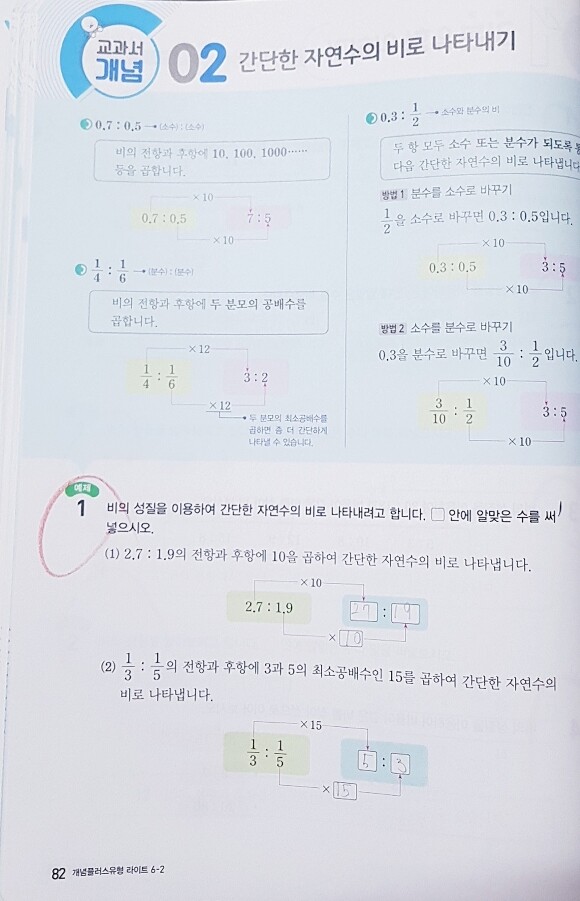 교과서
개념
02 간단한 자연수의 비로 나타내기
0.7 : 0.5 → (소수) : (소수)
비의 전항과 후항에 10, 100, 1000……
등을 곱합니다.
×10
0.7 : 0.5 7 : 5
×10
1/4 : 1/6 → (분수) : (분수)
비의 전항과 후항에 두 분모의 공배수를
곱합니다.
×12
1/4 : 1/6 3 : 2
×12
두 분모의 최소공배수를
곱하면 좀 더 간단하게
나타낼 수 있습니다.
0.3 : 1/2 → 소수와 분수의 비
두 항 모두 소수 또는 분수가 되도록
다음 간단한 자연수의 비로 나타냅니다
방법 1 분수를 소수로 바꾸기
1/2을 소수로 바꾸면 0.3 : 0.5입니다.
×10
0.3 : 0.5 3 : 5
×10
방법 2 소수를 분수로 바꾸기
0.3을 분수로 바꾸면 3/10 : 1/2입니다.
×10
3/10 : 1/2 3 : 5
×10
예제
1 비의 성질을 이용하여 간단한 자연수의 비로 나타내려고 합니다. □ 안에 알맞은 수를 써
넣으시오.
(1) 2.7 : 1.9의 전항과 후항에 10을 곱하여 간단한 자연수의 비로 나타냅니다.
×10
2.7 : 1.9 27 : 19
×10
(2) 1/3 : 1/5의 전항과 후항에 3과 5의 최소공배수인 15를 곱하여 간단한 자연수의
비로 나타냅니다.
×15
1/3 : 1/5 5 : 3
×15
82 개념플러스유형 라이트 6-2